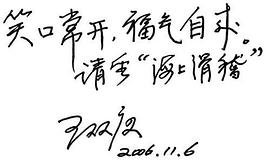 笑口常开,福气自来。
请看“海上滑稽”
王双庆
2006.11.6